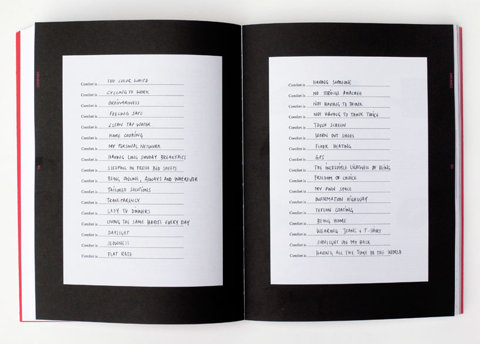 Comfort is THE COLOR WHITE
Comfort is CYCLING TO WORK
Comfort is ORDINARINESS
Comfort is FEELING SAFE
Comfort is CLEAN TAP WATER
Comfort is HOME COOKING
Comfort is MY PERSONAL NETWORK
Comfort is HAVING LONG SUNDAY BREAKFASTS
Comfort is SLEEPING IN FRESH BED SHEETS
Comfort is BEING ONLINE, ALWAYS AND WHEREVER
Comfort is TAILORED SOLUTIONS
Comfort is TRANSPARENCY
Comfort is LAZY TV DINNERS
Comfort is LIVING THE SAME HABITS EVERY DAY
Comfort is DAYLIGHT
Comfort is SLOWNESS
Comfort is FLAT RATE
Comfort is HAVING SOMEONE
Comfort is NO STRINGS ATTACHED
Comfort is NOT HAVING TO THINK
Comfort is NOT HAVING TO THINK TWICE
Comfort is TOUCH SCREEN
Comfort is WORN OUT SHOES
Comfort is FLOOR HEATING
Comfort is GPS
Comfort is THE INCREDIBLE LIGHTNESS OF BEING
Comfort is FREEDOM OF CHOICE
Comfort is MY OWN SPACE
Comfort is INFORMATION HIGHWAY
Comfort is TEFLON COATING
Comfort is BEING HOME
Comfort is WEARING JEANS + T-SHIRT
Comfort is SUNLIGHT ON MY BACK
Comfort is HAVING ALL THE TIME IN THE WORLD